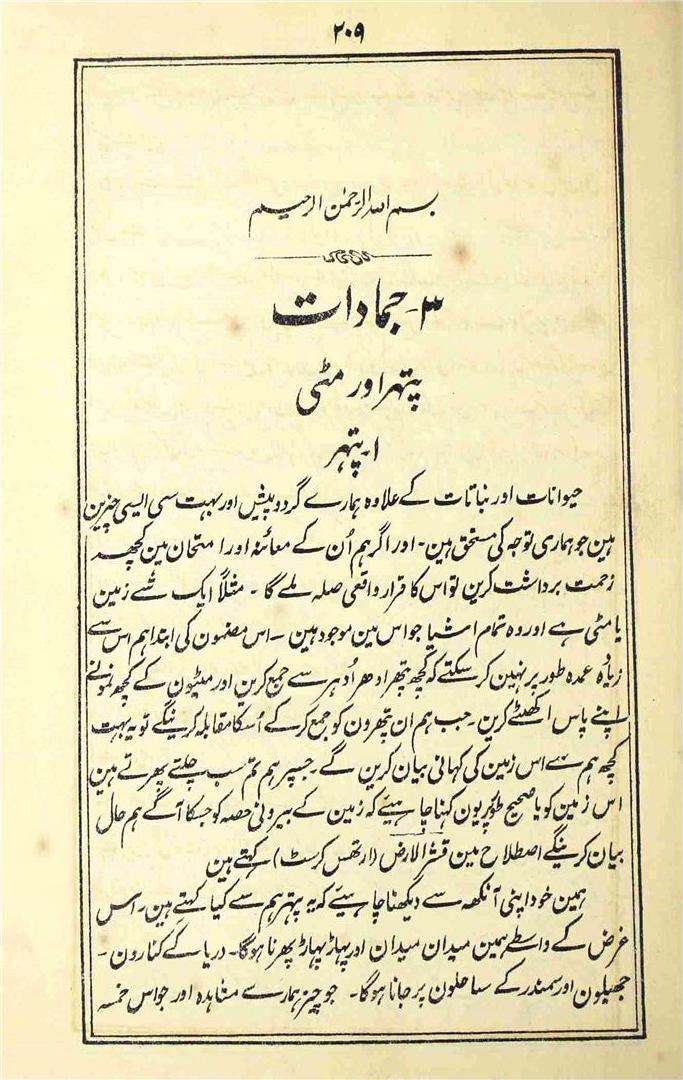 ۲۰۹
بسم اللہ الرحمٰن الرحیم
۳- جمادات
پتھر اور مٹی
۱- پتھر
حیوانات اور نباتات کے علاوہ ہمارے گرد و پیش اور بہت سی ایسی چیزین
ہین جو ہماری توجہ کی مستحق ہین- اور اگر ہم اُن کے معائنہ اور امتحان مین کچھ
زحمت برداشت کرین تو اس کا قرار واقعی صلہ ملے گا - مثلاً ایک شے زمین
یا مٹی ہے اور وہ تمام اشیا جو اس مین موجود ہین - اس مضمون کی ابتدا ہم اس سے
زیادہ عمدہ طور پر نہین کر سکتے کہ کچھ پتھر ادھر اُدھر سے جمع کرین اور مٹیون کے کچھ نمونے
اپنے پاس اکھٹے کرین- جب ہم ان پتھرون کو جمع کر کے اُسکا مقابلہ کرینگے تو یہ بہت
کچھ ہم سے اس زمین کی کہانی بیان کرین گے- جسپر ہم تم سب چلتے پھرتے ہین
اس زمین کو یا صحیح طور پر یون کہنا چاہیئے کہ زمین کے بیرونی حصہ کو جسکا آگے ہم حال
بیان کرینگے اصطلاح مین قشر الارض (ارتھس کرسٹ) کہتے ہین
ہمین خود اپنی آنکھ سے دیکھنا چاہیئے کہ یہ پتھر ہم سے کیا کہتے ہین- اس
غرض کے واسطے ہمین میدان میدان اور پہاڑ پہاڑ پھرنا ہوگا- دریا کے کنارون -
جھیلون اور سمندر کے ساحلون پر جانا ہوگا- جو چیز ہمارے مشاہدہ اور حواس خمسہ